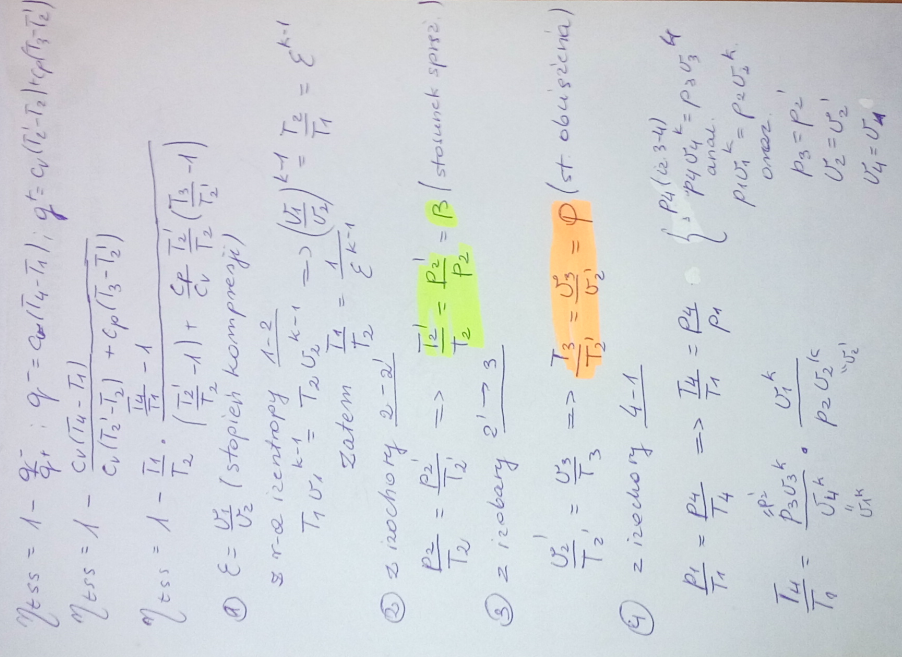 η_tss = 1 − q⁻/q⁺ ; q⁻ = c_v(T4−T1) ; q⁺ = c_v(T2'−T2) + c_p(T3−T2')
η_tss = 1 − c_v(T4−T1) / (c_v(T2'−T2) + c_p(T3−T2'))
η_tss = 1 − T1/T2 · (T4/T1 − 1) / ((T2'/T2 − 1) + c_p/c_v T2'/T2 (T3/T2' − 1))
① ε = v1/v2 (stopień kompresji)
z r-a izentropy 1-2
T1 v1^(k-1) = T2 v2^(k-1) => (v1/v2)^(k-1) = T2/T1 = ε^(k-1)
zatem T1/T2 = 1/ε^(k-1)
② z izochory 2-2'
p2/T2 = p2'/T2' => T2'/T2 = p2'/p2 = β (stosunek spręż.)
③ z izobary 2'→3
v2'/T2' = v3/T3 => T3/T2' = v3/v2' = φ (st. obciążenia)
④ z izochory 4-1
p1/T1 = p4/T4 => T4/T1 = p4/p1
{ p4 (iz. 3-4)
p4v4^k = p3v3^k
anal.
p1v1^k = p2v2^k
oraz
p3 = p2'
v2 = v2'
v4 = v1
T4/T1 = p3v3^k/v4^k · v1^k/p2v2^k
"p2'
"v1^k
"v2'